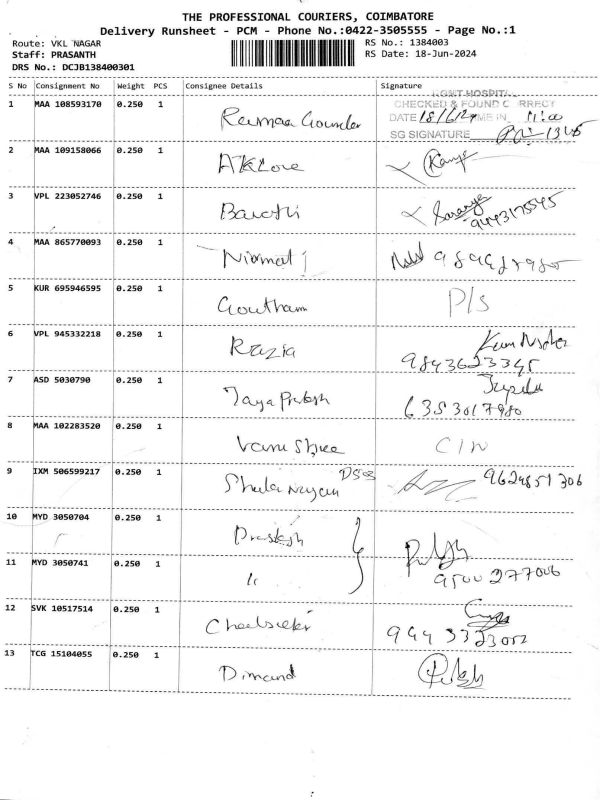 THE PROFESSIONAL COURIERS, COIMBATORE
Delivery Runsheet - PCM - Phone No.:0422-3505555 - Page No.:1
Route: VKL NAGAR
Staff: PRASANTH
DRS No.: DCJB138400301
RS No.: 1384003
RS Date: 18-Jun-2024
S No Consignment No Weight PCS Consignee Details Signature
HOSPITAL
CHECKED & FOUND CORRECT
DATE 18/6/24 TIME IN 11:00
SG SIGNATURE
1 MAA 108593170 0.250 1 Gounder
2 MAA 109158066 0.250 1
3 VPL 223052746 0.250 1 Saranya
9443175545
4 MAA 865770093 0.250 1 Nirmal
5 KUR 695946595 0.250 1 Goutham P/S
6 VPL 945332218 0.250 1 Razia
9843623345
7 ASD 5030790 0.250 1 Jaya Prakash
6383017980
8 MAA 102283520 0.250 1 Vani Shree
9 IXM 506599217 0.250 1 9629851306
10 MYD 3050704 0.250 1 Prakash
11 MYD 3050741 0.250 1 " 9500277006
12 SVK 10517514 0.250 1
9443323052
13 TCG 15104055 0.250 1 Dimand